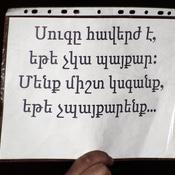 Սուգը հավերժ է,
եթե չկա պայքար:
Մենք միշտ կսգանք,
եթե չպայքարենք...